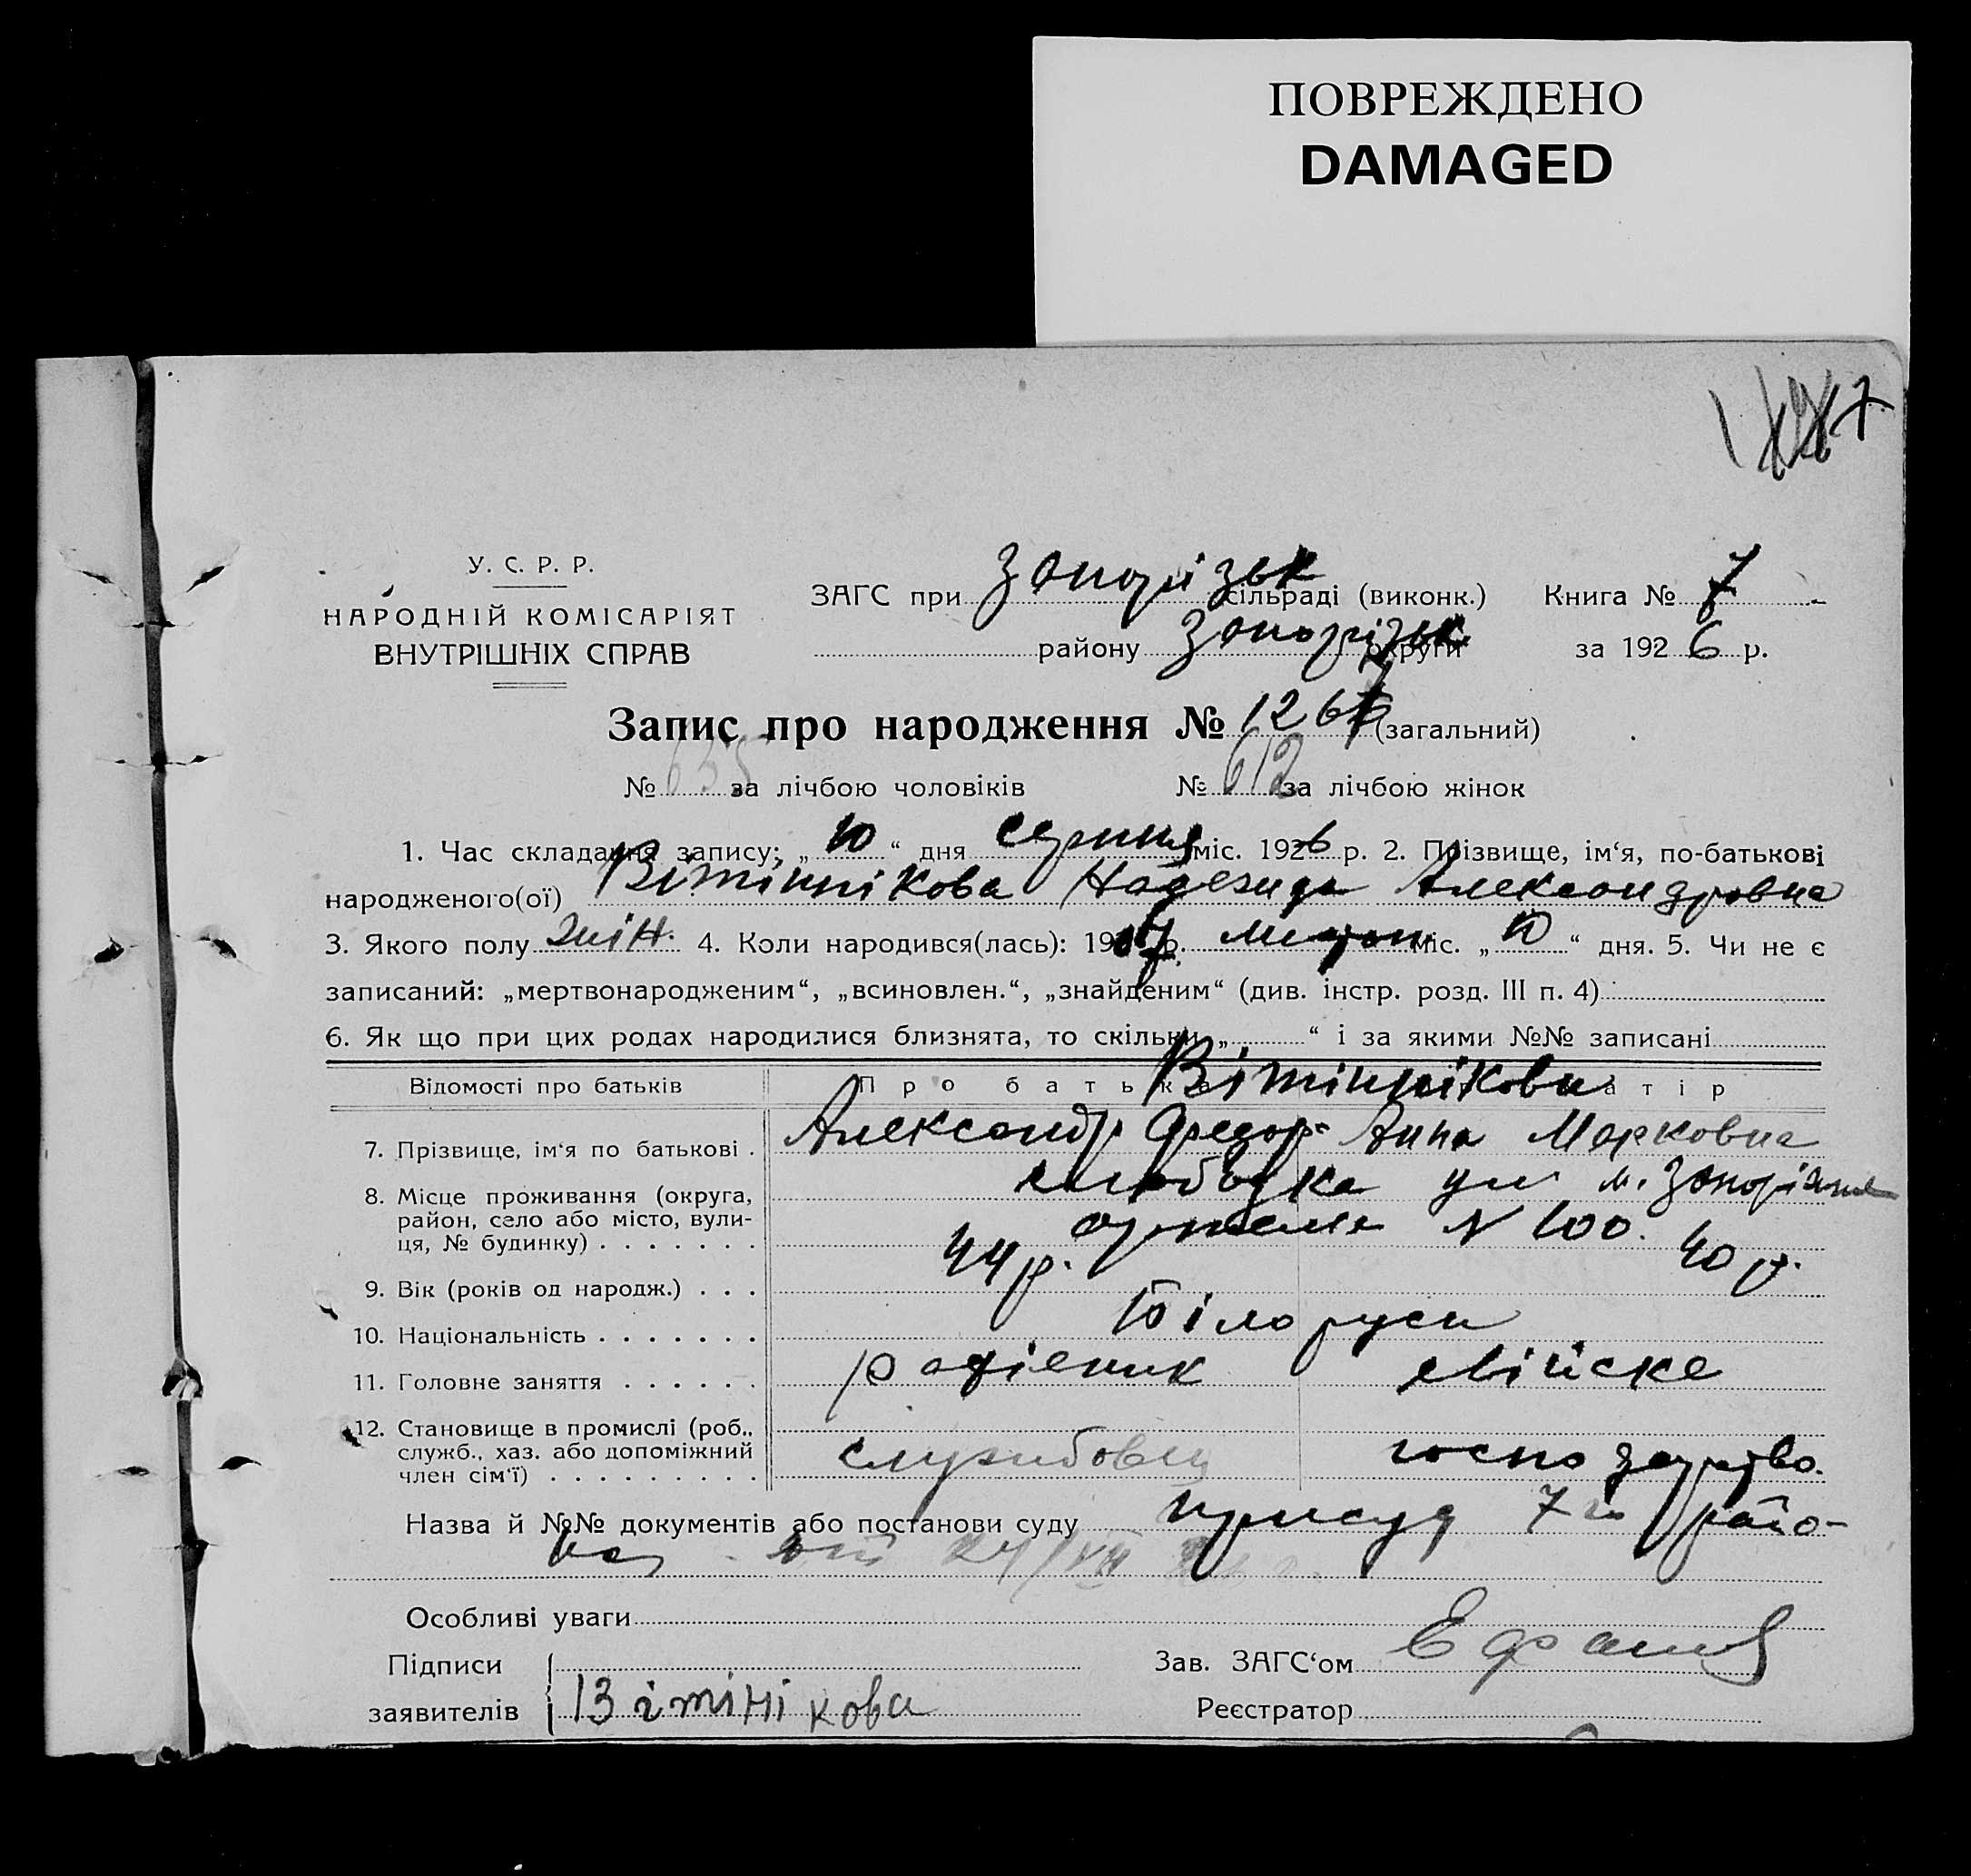 ПОВРЕЖДЕНО
DAMAGED
У. С. Р. Р.
НАРОДНІЙ КОМІСАРІЯТ
ВНУТРІШНІХ СПРАВ
ЗАГС при Запорізьк сільраді (виконк.) Книга № 7
району Запорізьк округи за 1926 р.
Запис про народження № 1267 (загальний)
№ 635 за лічбою чоловіків № 612 за лічбою жінок
1. Час складання запису: „10“ дня серпня міс. 1926 р. 2. Прізвище, ім‘я, по-батькові
народженого(ої) Вітіннікова Надежда Александровна
3. Якого полу жін. 4. Коли народився(лась): 19 р. міс. „10“ дня. 5. Чи не є
записаний: „мертвонародженим“, „всиновлен.“, „знайденим“ (див. інстр. розд. III п. 4)
6. Як що при цих родах народилися близнята, то скільки „ “ і за якими №№ записані
Відомості про батьків Про батька Вітіннікови матір
7. Прізвище, ім‘я по батькові . Александр Федор- Анна Марковна
8. Місце проживання (округа, район, село або місто, вулиця, № будинку) слободка ул м. Запоріжжя
артема № 100.
9. Вік (років од народж.) . . . 44 р. 40 р.
10. Національність . . . . . . . Білоруси
11. Головне заняття . . . . . . робітник
12. Становище в промислі (роб., служб., хаз. або допоміжний член сім‘ї) . . . . . . . . . службовец господарство.
Назва й №№ документів або постанови суду присуд 7го райо-
на от 24/VII
Особливі уваги
Підписи Зав. ЗАГС‘ом
заявителів Вітінікова Реєстратор